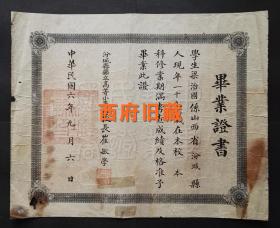 畢業證書
學生梁治國係山西省汾城縣
人現年一十 歲在本校 本
科修業期滿 成績及格准予
畢業此證
汾城縣縣立高等 長崔 學
中華民國六年九月六日
西府旧藏